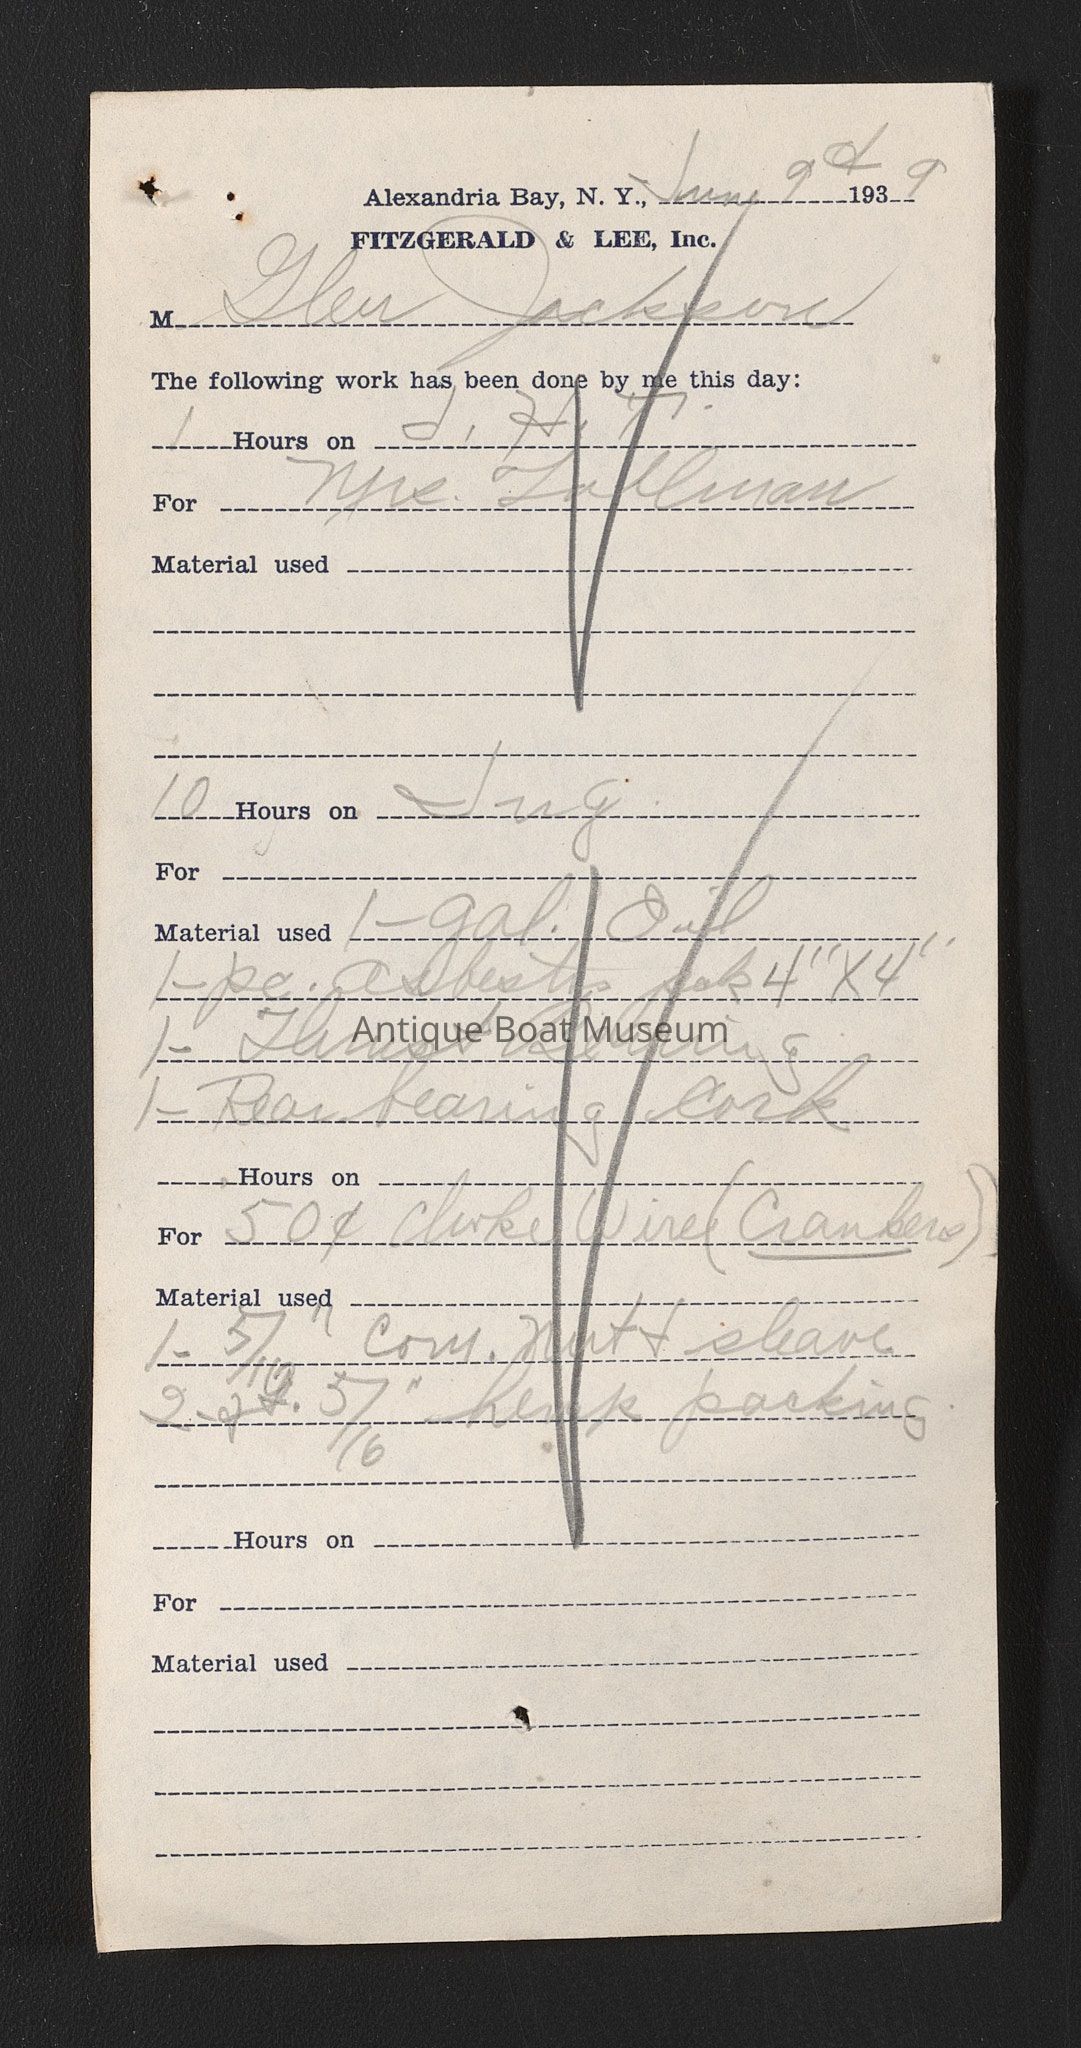 Alexandria Bay, N. Y., June 9th 1939
FITZGERALD & LEE, Inc.
M Glen Jackson
The following work has been done by me this day:
1 Hours on
For Mrs.
Material used
10 Hours on
For
Material used 1- gal. Oil
1- pc. 4" X 4"
Antique Boat Museum
1- Thrust Bearing
1- Rear bearing Cork
Hours on
For 50¢ Choke Wire
Material used
1- 5/16" Com. Nutt & sleave
2- ft. 5/16" hemp packing
Hours on
For
Material used